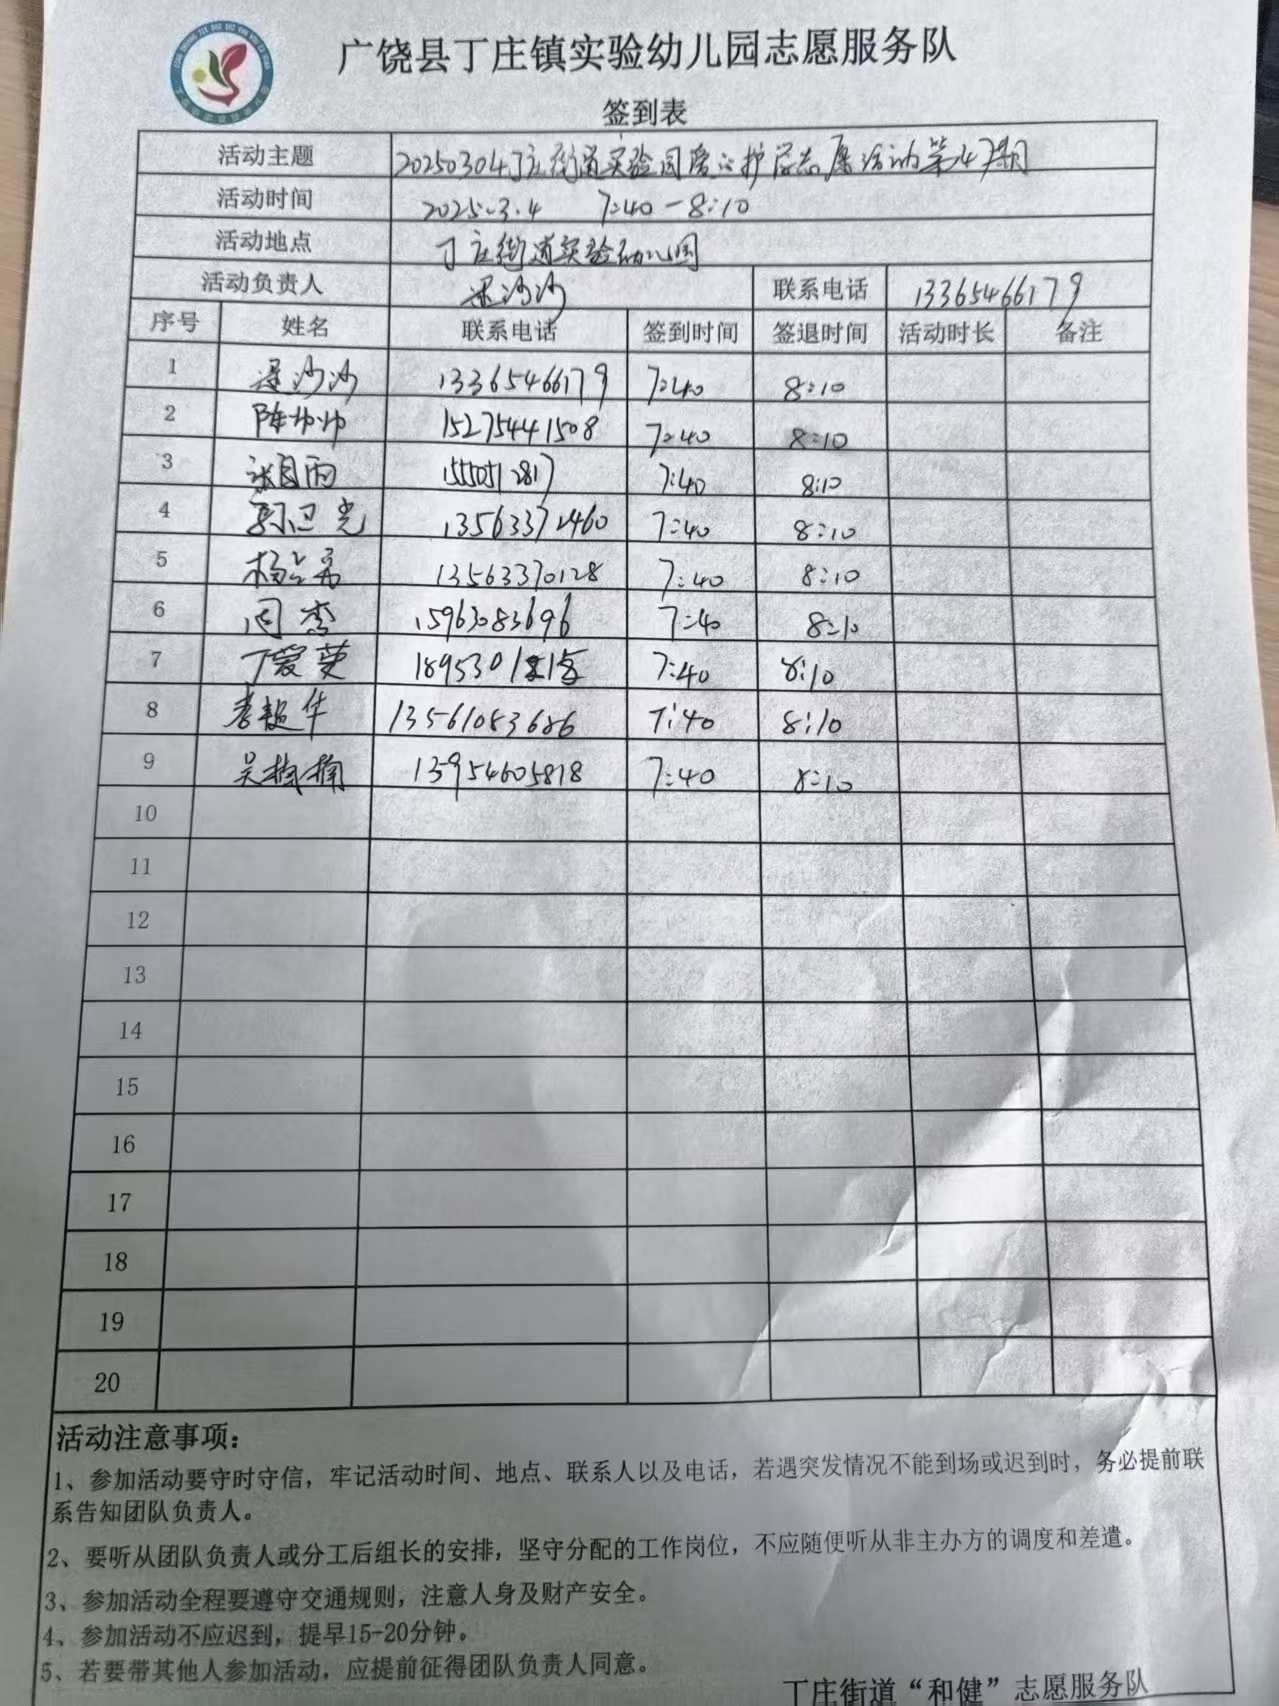 广饶县丁庄镇实验幼儿园志愿服务队
签到表
活动主题 20250304丁庄街道实验园爱心护学志愿活动第47期
活动时间 2025.3.4 7:40-8:10
活动地点 丁庄街道实验幼儿园
活动负责人 梁沙沙 联系电话 13365466179
序号 姓名 联系电话 签到时间 签退时间 活动时长 备注
1 梁沙沙 13365466179 7:40 8:10
2 陈帅帅 15275441508 7:40 8:10
3 15550512817 7:40 8:10
4 13563372460 7:40 8:10
5 13563370128 7:40 8:10
6 闫李 15963083696 7:40 8:10
7 丁爱英 7:40 8:10
8 李超华 13561083686 7:40 8:10
9 吴楠楠 13954605818 7:40 8:10
10
11
12
13
14
15
16
17
18
19
20
活动注意事项：
1、参加活动要守时守信，牢记活动时间、地点、联系人以及电话，若遇突发情况不能到场或迟到时，务必提前联
系告知团队负责人。
2、要听从团队负责人或分工后组长的安排，坚守分配的工作岗位，不应随便听从非主办方的调度和差遣。
3、参加活动全程要遵守交通规则，注意人身及财产安全。
4、参加活动不应迟到，提早15-20分钟。
5、若要带其他人参加活动，应提前征得团队负责人同意。
丁庄街道“和健”志愿服务队